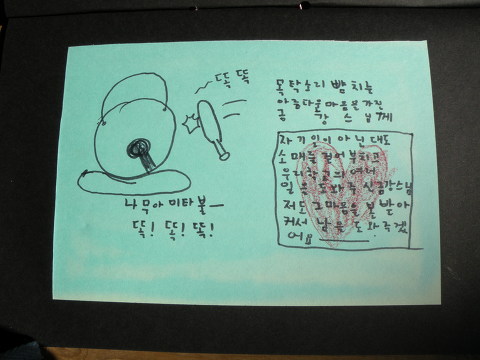 똑 똑
나무아미타불ㅡ
똑! 똑! 똑!
목탁소리 뺨치는
아름다운마음을가진
금 강 스님께
자기일이 아닌대도
소매를 걷어 부치고
우리학교의 여러
일을 도와주신금강스님
저도 그마음을 본받아
커서 남을 도와주겠
어요